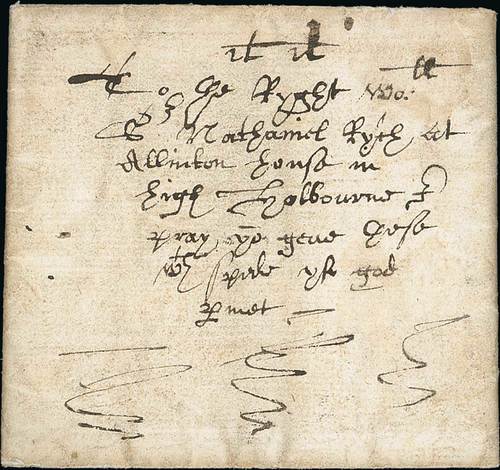 To the Ryght Wo:
Sr Nathaniel Rych at
Allinton house in
high Holbourne I
pray yo geue these
wth spede yf god
pmet